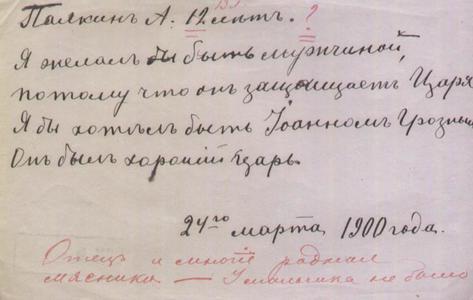 Палкинъ А. 12 лѣтъ. ?
Я желалъ бы быть мужчиной,
потому что онъ защищаетъ Царя
Я бы хотѣлъ быть Іоанномъ Грознымъ
Онъ былъ хорошій Царь.
24го марта 1900 года.
Отецъ и многіе родные
мясники — У мальчика не было